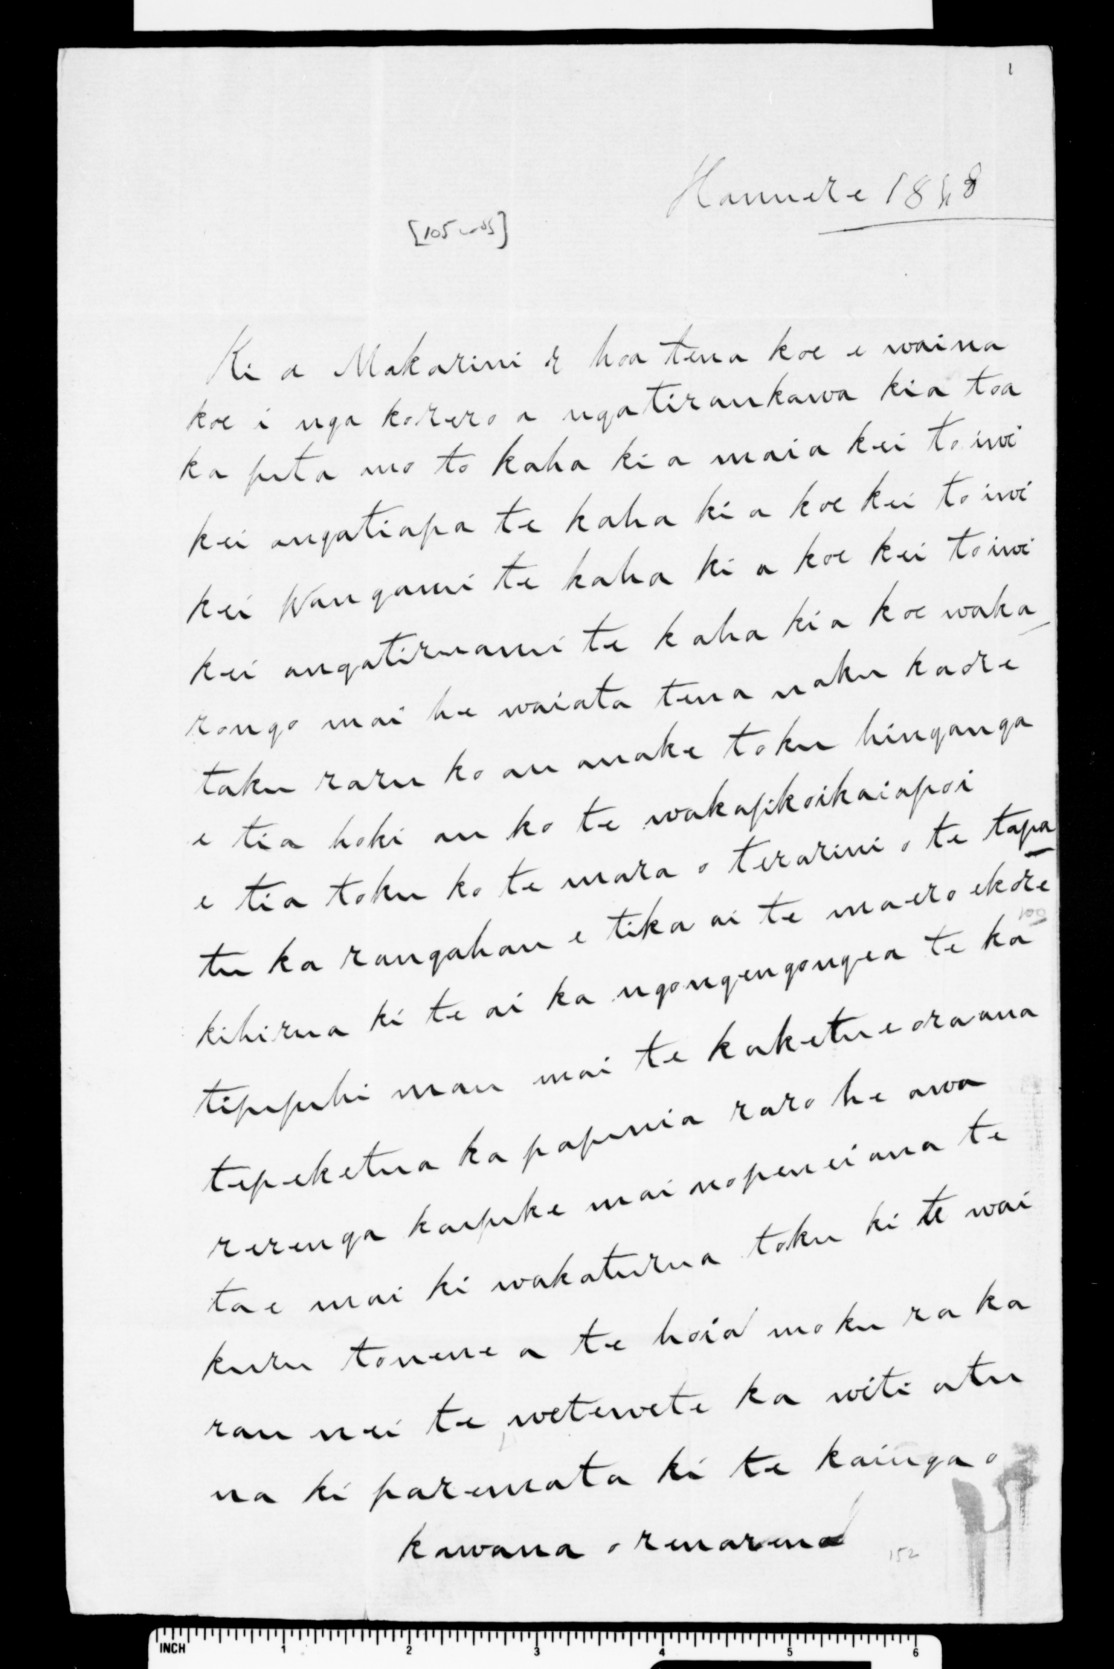 1
Hanuere 1848
[105 words]
Ki a Makarini e hoa tena koe e waina
koe i nga korero a ngatiraukawa kia toa
ka puta mo to kaha ki a maia kei to iwi
kei angatiapa te kaha ki a koe kei to iwi
kei Wanganui te kaha ki a koe kei to iwi
kei angatiruanui te kaha kia koe waka_
rongo mai he waiata tena naku kaore
taku raru ko au anake toku hinganga
e tia hoki au ko te wakapikoikaiapoi
e tia toku ko te mara o terarini o te tapa
tu ka rangahau e tika ai te maero ekore
100
kihirua ki te ai ka ngongengongea te ka
tipupuhi mau mai te kaketu e ora ana
tepeketua ka papunia raro he awa
rerenga kaipuke mai nopeneiana te
tae mai ki wakaturua toku ki te wai
kuru tonene a te hoia moku ra ka
rau nei te wetewete ka witi atu
na ki paremata ki te kainga o
kawana o renarena
152
INCH 1 2 3 4 5 6